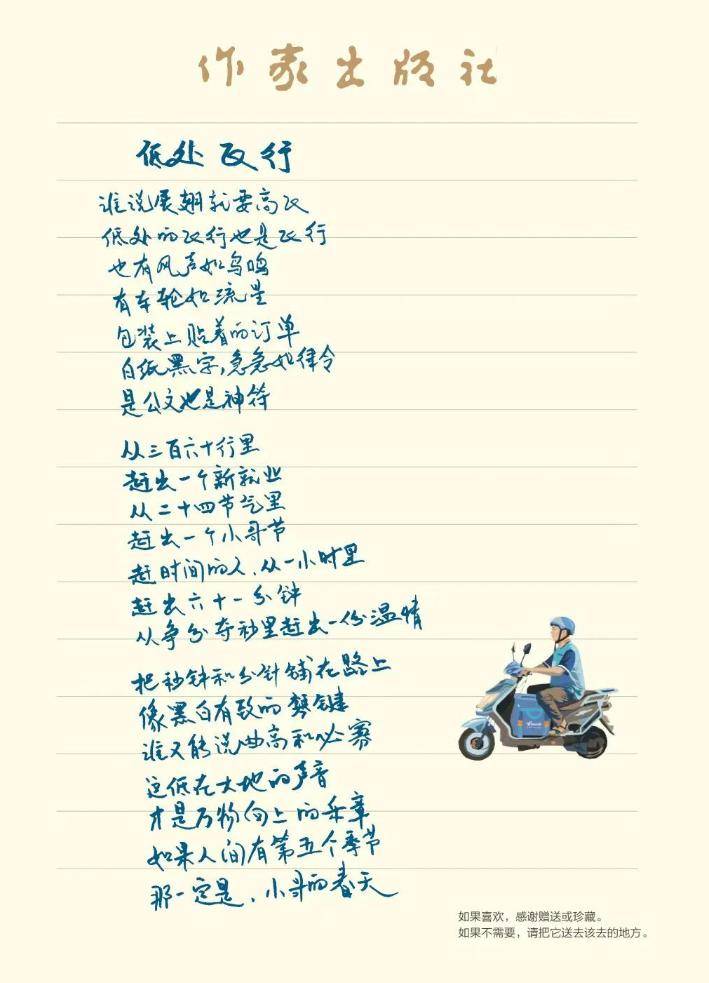 作家出版社
低处飞行
谁说展翅就要高飞
低处的飞行也是飞行
也有风声如鸟鸣
有车轮如流星
包装上贴着的订单
白纸黑字,急急如律令
是公文也是神符
从三百六十行里
赶出一个新就业
从二十四节气里
赶出一个小哥节
赶时间的人,从一小时里
赶出六十一分钟
从争分夺秒里赶出一份温情
把秒钟和分针铺在路上
像黑白有致的琴键
谁又能说曲高和必寡
这低在大地的声音
才是万物向上的乐章
如果人间有第五个季节
那一定是,小哥的春天
如果喜欢，感谢赠送或珍藏。
如果不需要，请把它送去该去的地方。